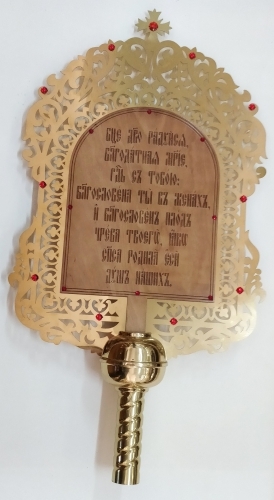 Бц҃е дв҃о радꙋйсѧ,
Благодатнаѧ мр҃іе,
Гд҃ь съ тобою:
благословена ты въ женахъ,
и благословенъ плодъ
чрева твоегѡ, ꙗкѡ
сп҃са родила еси
дꙋшъ нашихъ.